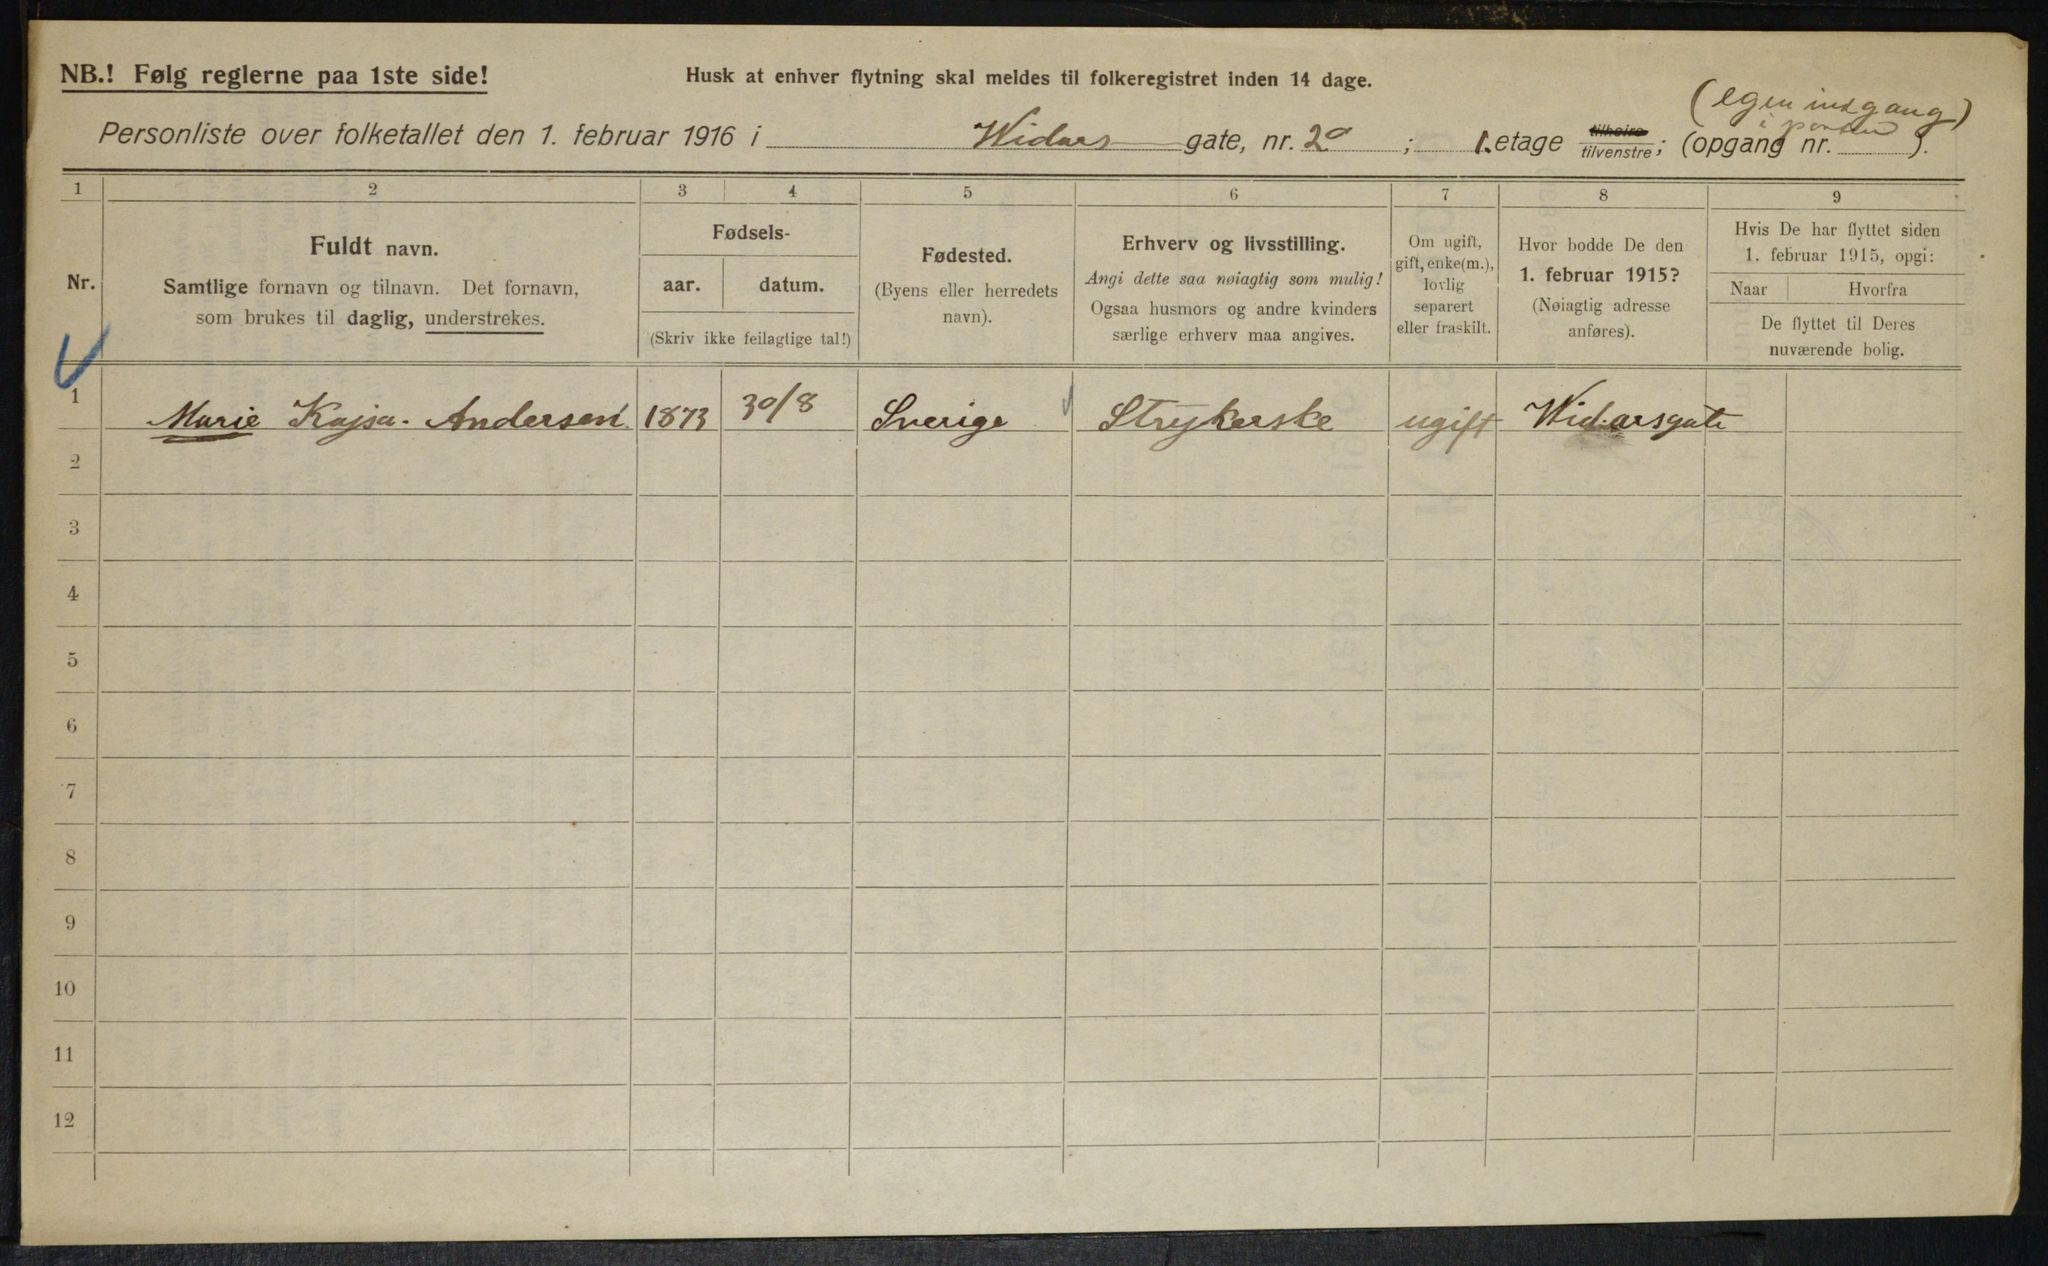 NB.! Følg reglerne paa 1ste side!
Husk at enhver flytning skal meldes til folkeregistret inden 14 dage.
(egen indgang
i porten)
Personliste over folketallet den 1. februar 1916 i Widars gate, nr. 2a ; 1. etage tilhøire tilvenstre; (opgang nr. ).
1 2 3 4 5 6 7 8 9
Nr.
Fuldt navn.
Samtlige fornavn og tilnavn. Det fornavn,
som brukes til daglig, understrekes.
Fødsels-
aar. datum.
(Skriv ikke feilagtige tal!)
Fødested.
(Byens eller herredets
navn).
Erhverv og livsstilling.
Angi dette saa nøiagtig som mulig!
Ogsaa husmors og andre kvinders
særlige erhverv maa angives.
Om ugift,
gift, enke(m.),
lovlig
separert
eller fraskilt.
Hvor bodde De den
1. februar 1915?
(Nøiagtig adresse
anføres).
Hvis De har flyttet siden
1. februar 1915, opgi:
Naar Hvorfra
De flyttet til Deres
nuværende bolig.
1 Marie Kajsa. Andersen 1873 30/8 Sverige Strykerske ugift Widarsgate
2
3
4
5
6
7
8
9
10
11
12